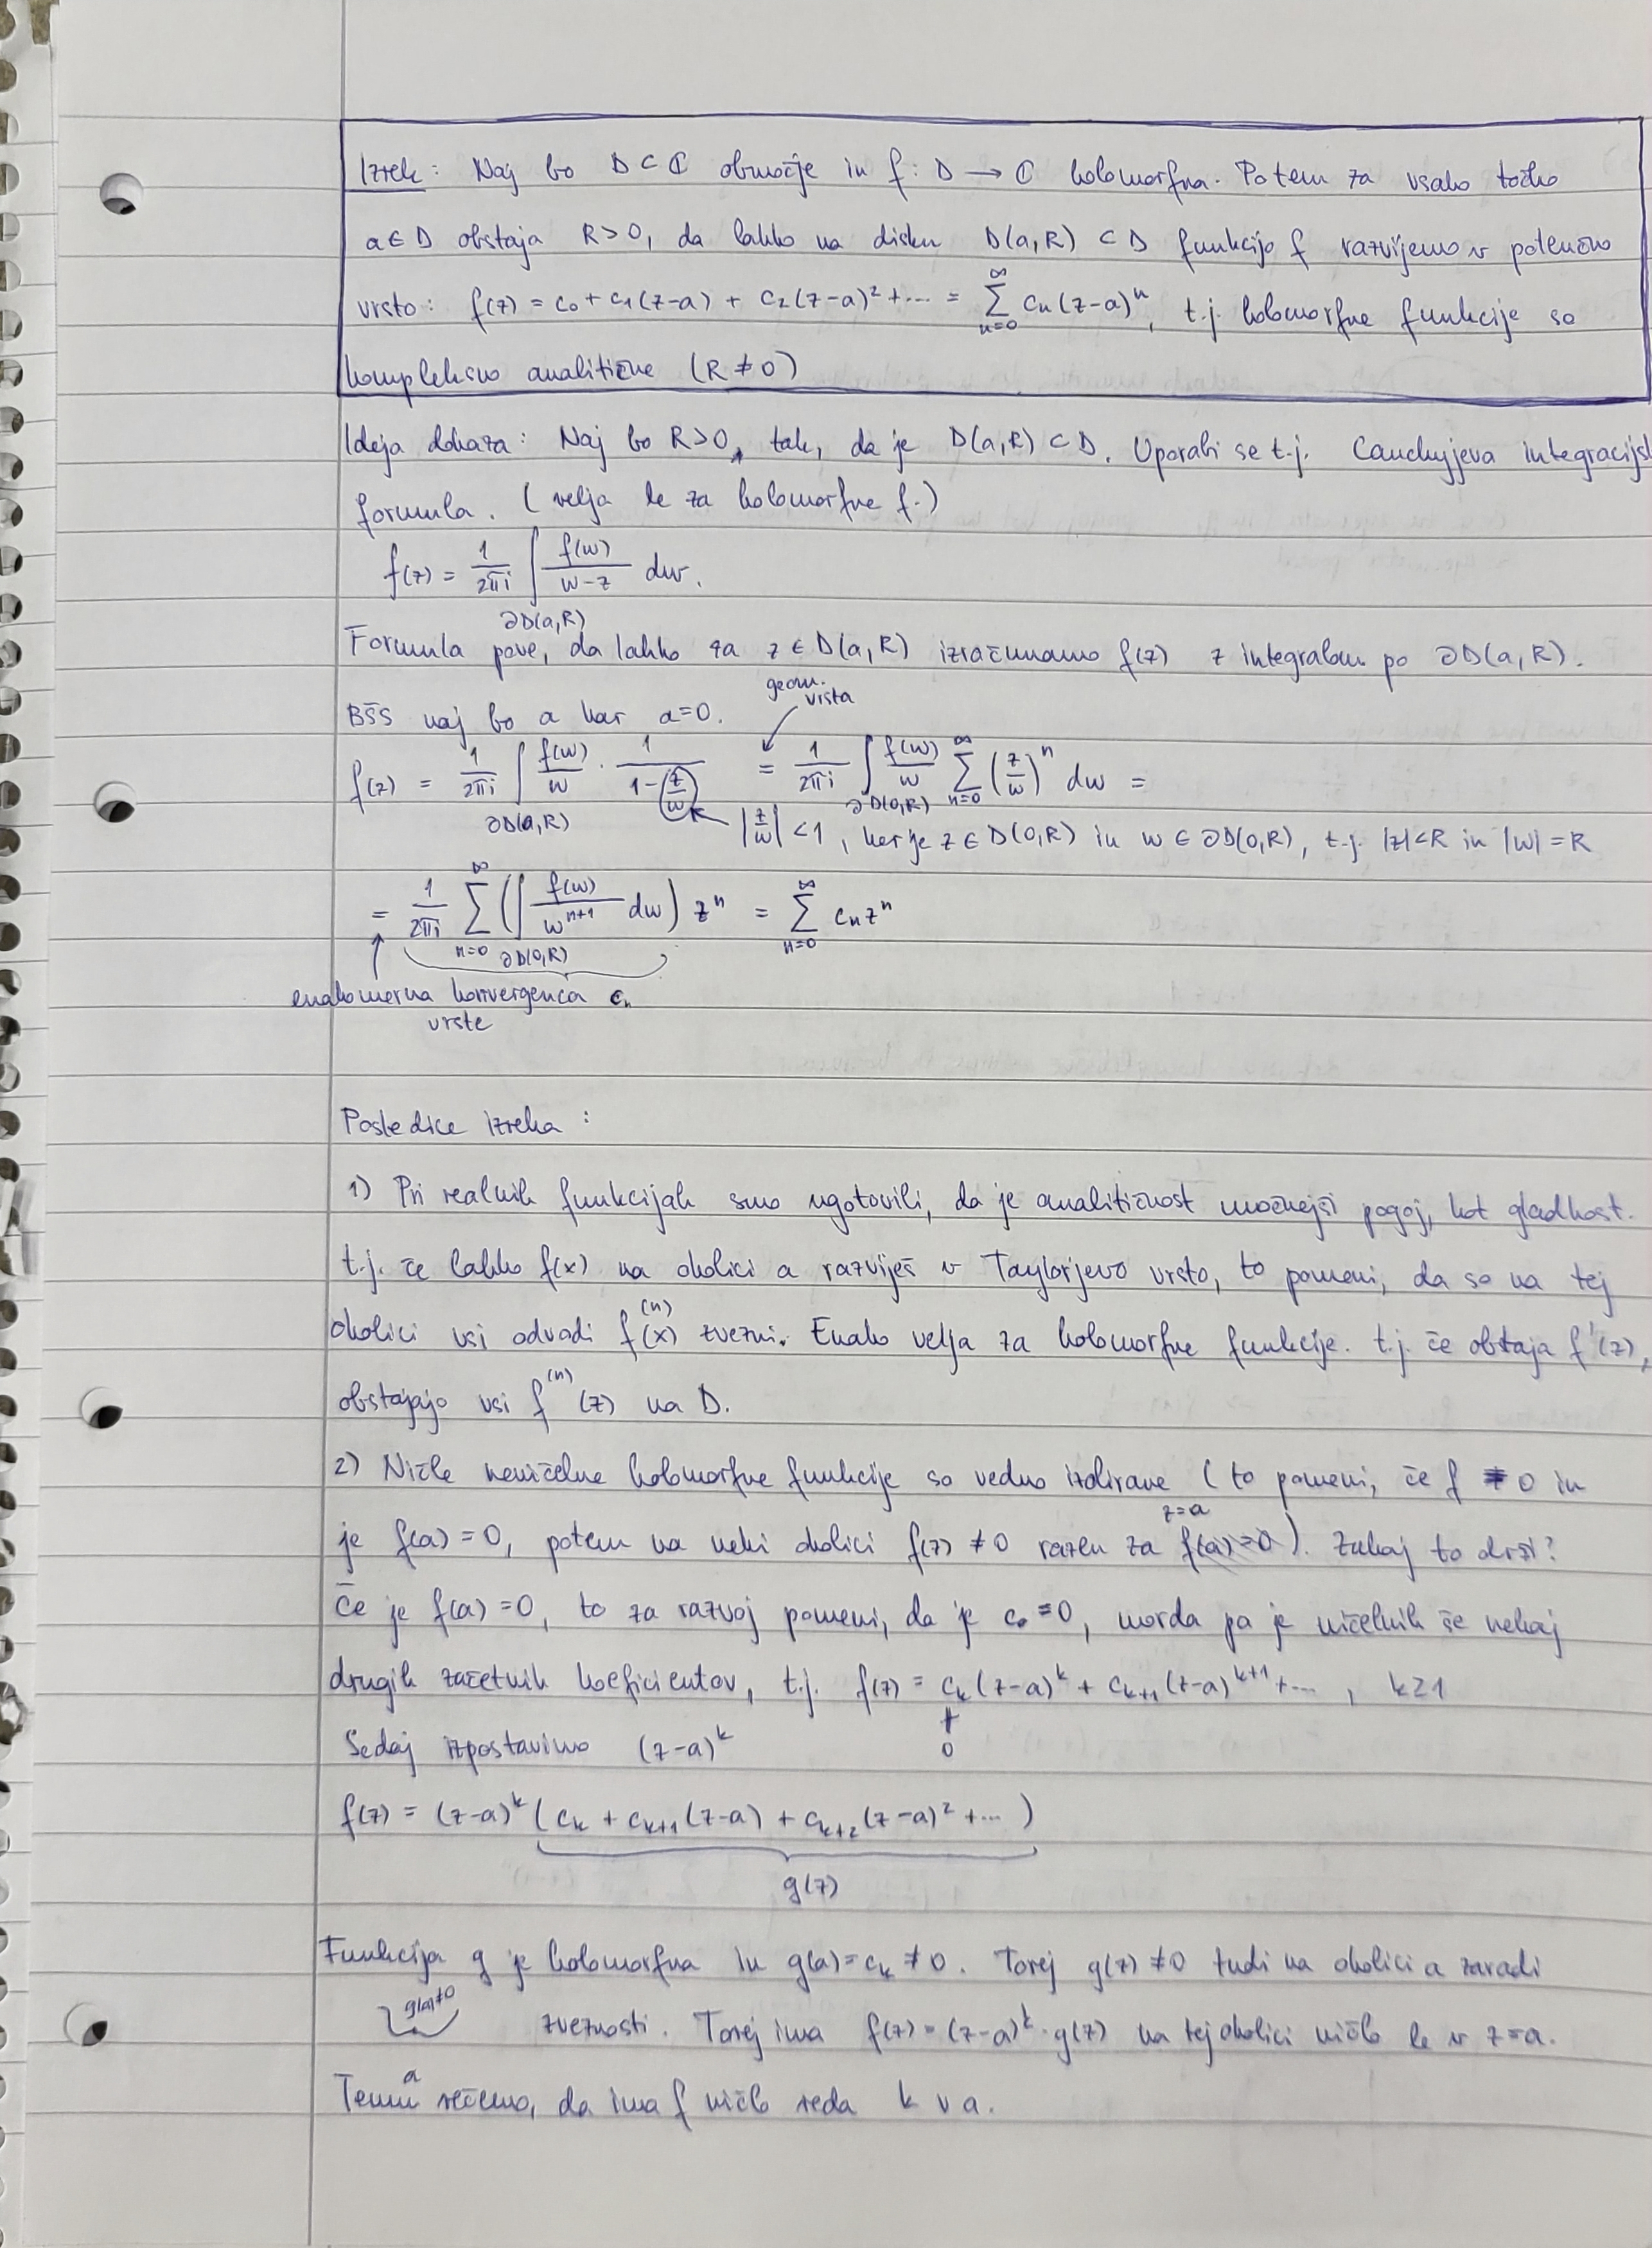 Izrek: Naj bo D ⊂ ℂ območje in f: D → ℂ holomorfna. Potem za vsako točko
a ∈ D obstaja R > 0, da lahko na disku D(a,R) ⊂ D funkcijo f razvijemo v potenčno
vrsto: f(z) = c₀ + c₁(z-a) + c₂(z-a)² + ... = ∑_{n=0}^{∞} cₙ(z-a)ⁿ, t.j. holomorfne funkcije so
kompleksno analitične (R ≠ 0)
Ideja dokaza: Naj bo R>0, tak, da je D(a,R) ⊂ D. Uporabi se t.j. Cauchyjeva integracijsk
formula. (velja le za holomorfne f.)
f(z) = 1/(2πi) ∫_{∂D(a,R)} f(w)/(w-z) dw.
Formula pove, da lahko za z ∈ D(a,R) izračunamo f(z) z integralom po ∂D(a,R).
geom. vrsta
BŠS naj bo a kar a=0.
f(z) = 1/(2πi) ∫_{∂D(a,R)} f(w)/w · 1/(1-(z/w)) = 1/(2πi) ∫_{∂D(0,R)} f(w)/w ∑_{n=0}^{∞} (z/w)ⁿ dw =
|z/w| < 1, ker je z ∈ D(0,R) in w ∈ ∂D(0,R), t.j. |z|<R in |w|=R
= 1/(2πi) ∑_{n=0}^{∞} (∫_{∂D(0,R)} f(w)/w^{n+1} dw) zⁿ = ∑_{n=0}^{∞} cₙzⁿ
enakomerna konvergenca cₙ
vrste
Posledice izreka:
1) Pri realnih funkcijah smo ugotovili, da je analitičnost močnejši pogoj, kot gladkost.
t.j. če lahko f(x) na okolici a razviješ v Taylorjevo vrsto, to pomeni, da so na tej
okolici vsi odvodi f^{(n)}(x) zvezni. Enako velja za holomorfne funkcije. t.j. če obstaja f'(z),
obstajajo vsi f^{(n)}(z) na D.
2) Ničle neničelne holomorfne funkcije so vedno izolirane (to pomeni, če f ≠ 0 in
je f(a) = 0, potem na neki okolici f(z) ≠ 0 razen za z=a). Zakaj to drži?
Če je f(a) = 0, to za razvoj pomeni, da je c₀ = 0, morda pa je ničelnih še nekaj
drugih začetnih koeficientov, t.j. f(z) = cₖ(z-a)ᵏ + cₖ₊₁(z-a)ᵏ⁺¹ + ..., k≥1
≠
Sedaj izpostavimo (z-a)ᵏ 0
f(z) = (z-a)ᵏ (cₖ + cₖ₊₁(z-a) + cₖ₊₂(z-a)² + ...)
g(z)
Funkcija g je holomorfna in g(a) = cₖ ≠ 0. Torej g(z) ≠ 0 tudi na okolici a zaradi
g(a)≠0
zveznosti. Torej ima f(z) = (z-a)ᵏ · g(z) na tej okolici ničlo le v z=a.
a
Temu rečemo, da ima f ničlo reda k v a.